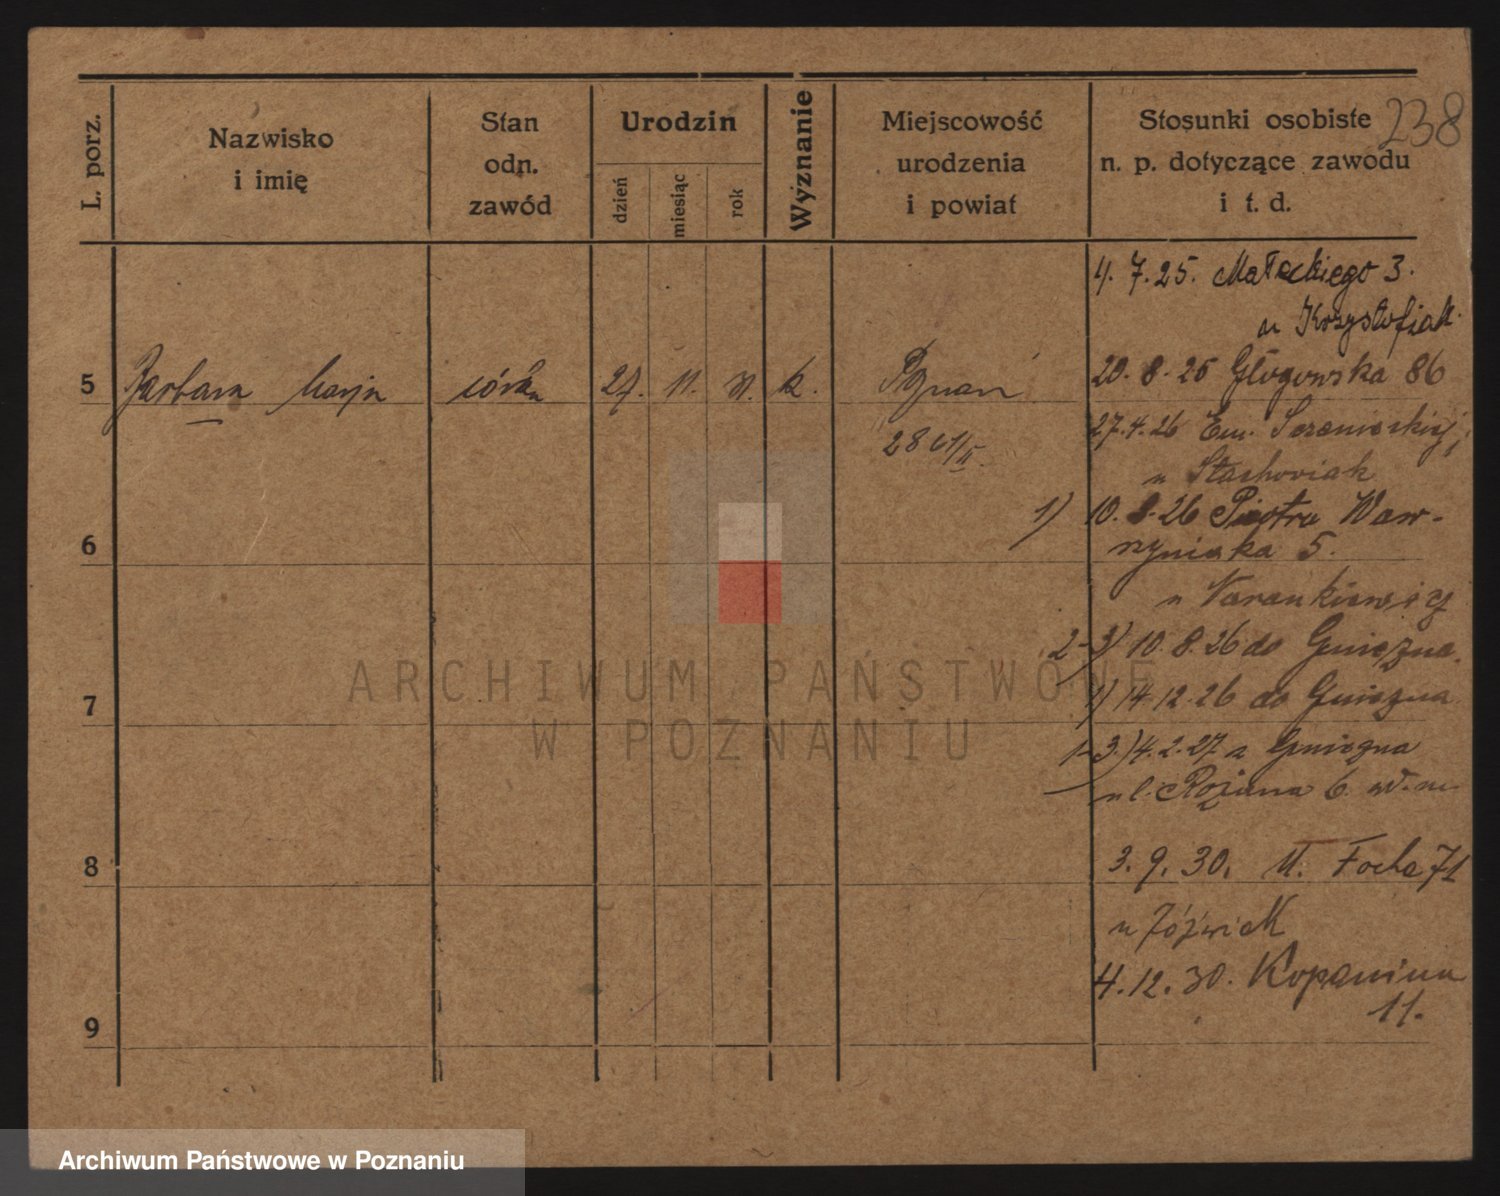 238
L. porz.
Nazwisko
i imię
Stan
odn.
zawód
Urodzin
dzień
miesiąc
rok
Wyznanie
Miejscowość
urodzenia
i powiat
Stosunki osobiste
n. p. dotyczące zawodu
i t. d.
4. 7. 25. Małeckiego 3.
u Krzystofiak
5 Barbara Marja córka 27. 11. 31. k. Poznań
20. 8. 25 Głogowska 86
27. 4. 26 Em.
2861/II
u Stachowiak
1) 10. 8. 26 Piotra Waw-
6
rzyniaka 5.
u
2-3) 10. 8. 26 do Gniezna.
7
1) 14. 12. 26 do Gniezna
1-3.) 4. 2. 27 z Gniezna
ul. Różana 6.
8
3. 9. 30. M. Focha 71
u Jóźwiak
4. 12. 30. Kopanina
11.
9
ARCHIWUM PAŃSTWOWE
W POZNANIU
Archiwum Państwowe w Poznaniu